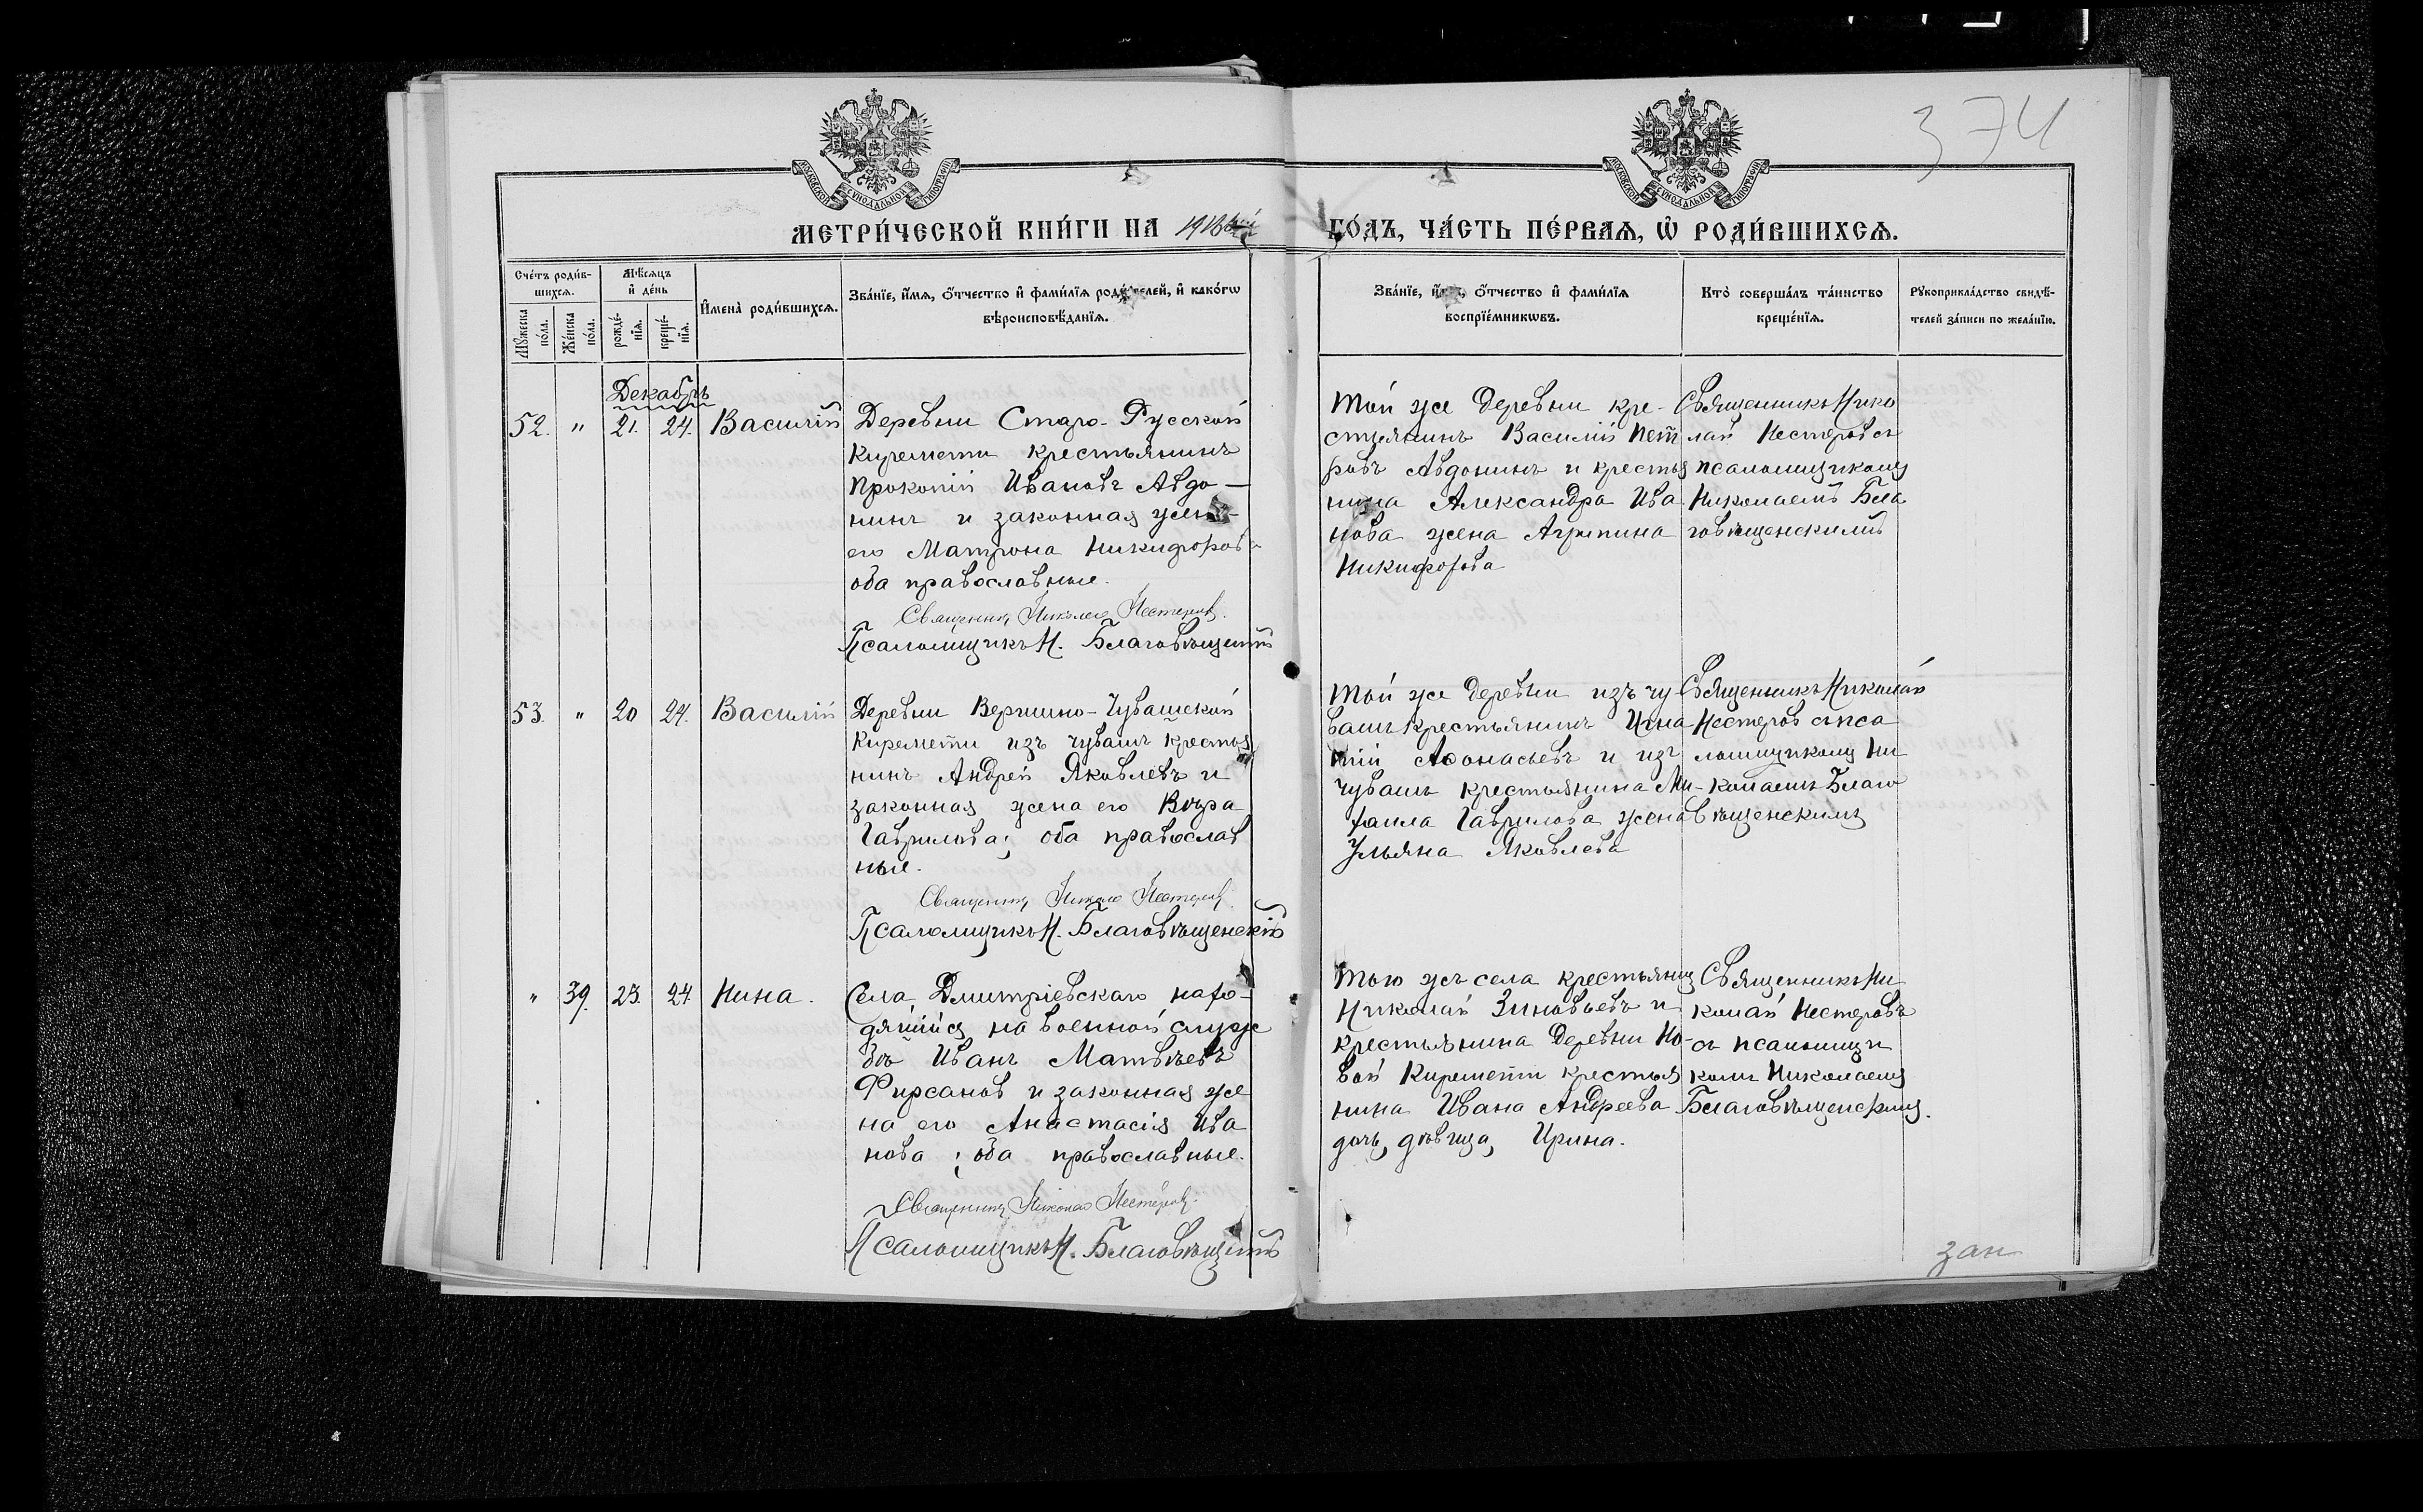 374
МОСКОВСКОЙ СѴНОДАЛЬНОЙ ТИПОГРАФІИ
МОСКОВСКОЙ СѴНОДАЛЬНОЙ ТИПОГРАФІИ
МЕТРИ́ЧЕСКОЙ КНИ́ГИ НА
ГО́ДЪ, ЧА́СТЬ ПЕ́РВАѦ, Ѡ҆ РОДИ́ВШИХСѦ.
Сче́тъ роди́в-
шихсѧ.
Мѣ́сѧцъ
и҆ де́нь
Мꙋ́жеска
по́ла.
Же́нска
по́ла.
рожде́-
нїѧ.
креще́-
нїѧ.
И҆мена̀ роди́вшихсѧ.
Зва́нїе, и҆́мѧ, ѻ҆́тчество и҆ фами́лїѧ роди́телей, и҆ како́гѡ
вѣроисповѣ́данїѧ.
Зва́нїе, и҆́мѧ, ѻ҆́тчество и҆ фами́лїѧ
воспрїе́мникѡвъ.
Кто̀ соверша́лъ та́инство
креще́нїѧ.
Рꙋкоприкла́дство свидѣ́-
телей за́писи по жела́нїю.
Декабрь
52. " 21. 24. Василій
Деревни Старо-Русской
Киремети крестьянинъ
Прокопій Ивановъ Авдо-
нинъ и законная жена
его Матрона Никифорова
оба православные.
Священникъ Николай Нестеровъ.
Псаломщикъ Н. Благовѣщенскій
Той же деревни кре-
стьянинъ Василій Пет
ровъ Авдонинъ и крестья
нина Александра Ива
нова жена Агрипина
Никифорова
Священникъ Нико
лай Нестеровъ съ
псаломщикомъ
Николаемъ Бла
говѣщенскимъ
53. " 20 24. Василій
Деревни Вершино-Чувашской
Киремети изъ чувашъ крестья
нинъ Андрей Яковлевъ и
законная жена его Вѣра
Гаврилова; оба православ
ные.
Священникъ Николай Нестеровъ.
Псаломщикъ Н. Благовѣщенскій
Той же деревни изъ чу-
вашъ крестьянинъ Игна-
тій Аѳонасьевъ и изъ
чувашъ крестьянина Ми-
хаила Гаврилова жена
Ульяна Яковлева
Священникъ Николай
Нестеровъ съ пса
ломщикомъ Ни
колаемъ Благо
вѣщенскимъ
" 39. 23. 24. Нина.
Села Дмитріевскаго нахо-
дящійся на военной служ
бѣ Иванъ Матвѣевъ
Фирсановъ и законная же
на его Анастасія Ива
нова; оба православные.
Священникъ Николай Нестеровъ.
Псаломщикъ Н. Благовѣщенскій
Того жъ села крестьянинъ
Николай Зиновьевъ и
крестьянина деревни Но-
вой Киремети крестья
нина Ивана Андреева
дочь, дѣвица, Ирина.
Священникъ Ни
колай Нестеровъ
съ псаломщи
комъ Николаемъ
Благовѣщенскимъ.
зап